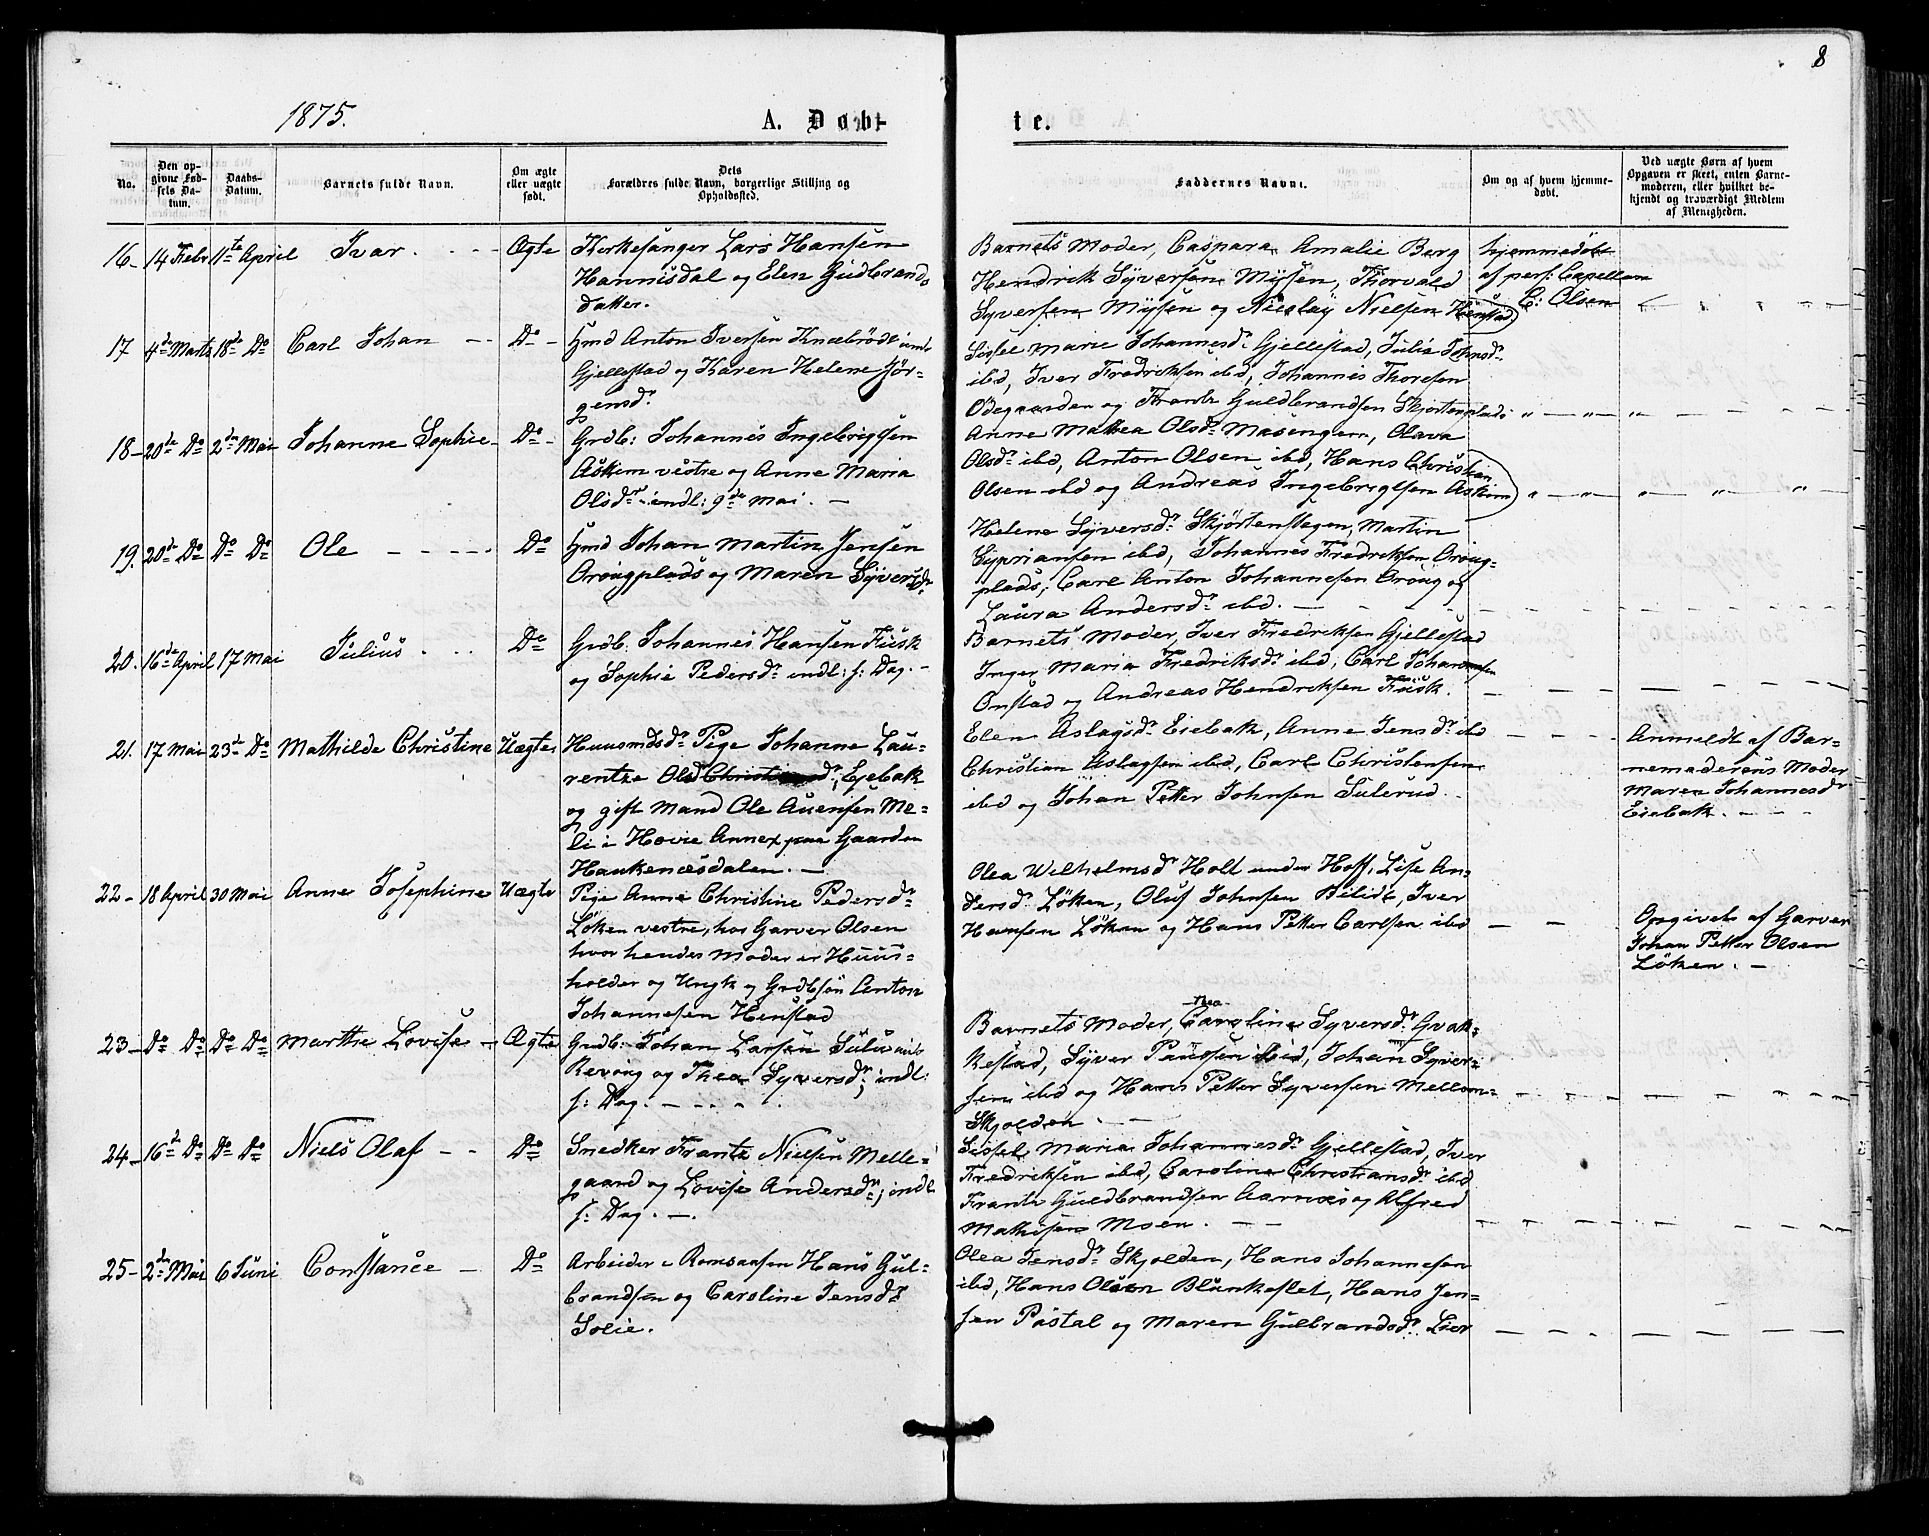 8
1875.
A. Døb-
te.
No.
Den op-
givne Fød-
sels Da-
tum.
Daabs-
Datum.
Barnets fulde Navn.
Om ægte
eller uægte
født.
Dets
Forældres fulde Navn, borgerlige Stilling og
Opholdssted.
Faddernes Navne.
Om og af hvem hjemme-
døbt.
Ved uægte Børn af hvem
Opgaven er skeet, enten Barne-
moderen, eller hvilket be-
kjendt og troværdigt Medlem
af Menigheden.
16 - 14 Febr 11te April Ivar. Ægte
Kirkesanger Lars Hansen
Hannisdal og Elen Gudbrands
datter.
Barnets Moder, Caspara Amalie Berg
Hendrik Syversen Mysen, Thorvald
Syversen Mysen og Nicolay Nielsen Henstad
hjemmedøbt
af pers: Capellan
C: Olsen
17 4de Marts 18de Do Carl Johan - - Do -
Hmd Anton Iversen Knebrødt und
Gjellestad og Karen Helene Jør-
gensdr
Sissel Marie Johannesdr Gjellestad, Julie Johnsdr
ibd, Iver Fredriksen ibd, Johannes Thoresen
Ødegaarden og Frantz Guldbrandsen Skjortenplads
18 - 20de Do 2den Mai Johanne Sophie - Do -
Grdb: Johannes Ingebrigtsen
Askim vestre og Anne Maria
Olsdr - indl: 9de Mai. -
Anne Mathea Olsdr Masengen, Olava
Olsdr ibd, Anton Olsen ibd, Hans Christian
Olsen ibd og Andreas Ingebrigtsen Askim
19. 20de Do Do Do Ole - - - - - Do
Hmd Johan Martin Jensen
Onougplads og Maren Syversdr
Helene Syversdr Skjørtenstegen, Martin
Sypriansen ibd, Johannes Fredriksen Oroug-
plads, Carl Anton Johannesen Oroug og
Laura Andersdr ibd. -
20. 16de April 17 Mai Julius Do
Grdb. Johannes Hansen Fusk
og Sophie Pedersdr indl: s: Dag. -
Barnets Moder, Iver Fredriksen Gjellestad
Inger Maria Fredriksdr ibd, Carl Johannesen
Onstad og Andreas Hendriksen Fusk.
21. 17 Mai 23de Do Mathilde Christine Uægte
Huusmdsdr Pige Johanne Lau-
rentze Olsdr, Eiebak
og gift Mand Ole Auensen Me-
li i Hovie Annex paa Gaarden
Haukenæsdalen. -
Elen Aslagsdr Eiebak, Anne Jensdr ibd
Christian Aslagsen ibd, Carl Christensen
ibd og Johan Petter Johnsen Sulerud.
Anmeldt af Bar-
nemoderens Moder
Maren Johannesdr
Eiebak. - - -
22 - 18 April 30 Mai Anne Josephine Uægte
Pige Anne Christine Pedersdr
Løken vestre, hos Garver Olsen
hvor hendes Moder er Huus-
holder og Ungk og Grdbsøn Anton
Johannesen Henstad
Olea Wilhelmsdr Holt under Hoff, Lise An-
dersdr Løken, Oluf Johnsen Bilidt, Iver
Hansen Løken og Hans Petter Carlsen ibd
Opgivet af Garver
Johan Petter Olsen
Løken. -
23 - Do Do Do Do Marthe Lovise - Ægte
Grdb: Johan Larsen Sulu
Revoug og Thea Syversdr, indl:
s: Dag. - - - -
Barnets Moder, Thea Caroline Syversdr Gvak-
kestad, Syver Paulsen ibid, Johan Syver-
sen ibd og Hans Petter Syversen Mellom-
Skjolden. - -
24 - 16de Do Do Do Niels Olaf - - Do
Snedker Frantz Nielsen Melle-
gaard og Lovise Andersdr; indl
s: Dag. - .
Sissel Maria Johannesdr Gjellestad, Iver
Fredriksen ibd, Caroline Christiansdr ibd
Frantz Guldbrandsen Aarnæs og Alfred
Mathisen Moen. - -
25 - 2den Mai 6 Juni Constance - Do
Arbeider i Romsaasen Hans Gul-
brandsen og Caroline Jensdr
Solie.
Olea Jensdr Skjolden, Hans Johannesen
ibd, Hans Olsen Blunkeslet, Hans Jen-
sen Pastal og Maren Gulbrandsdr. Lier